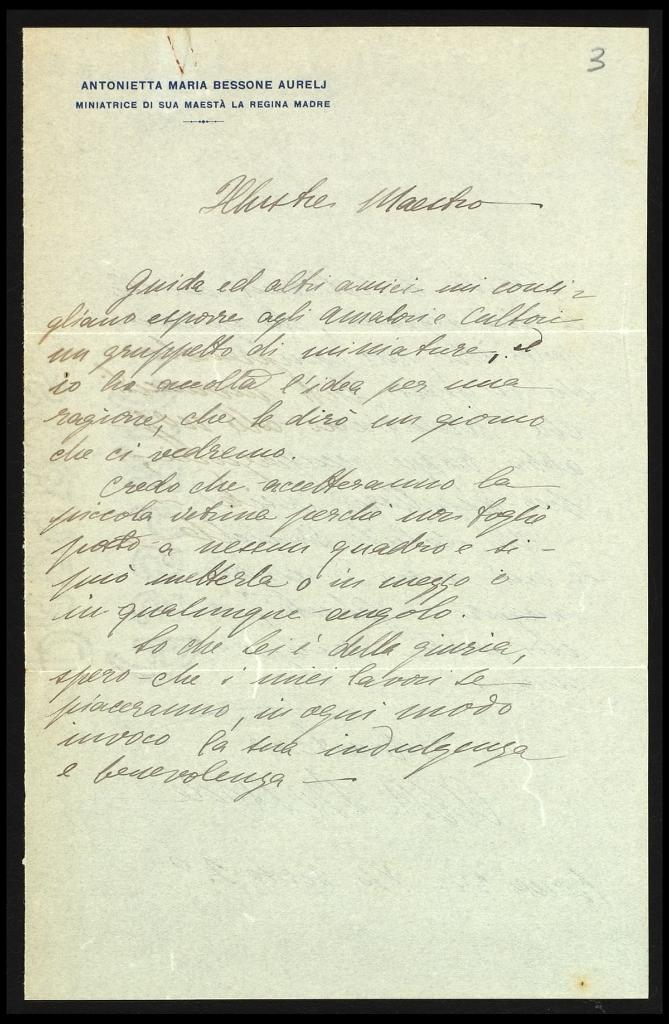 3
ANTONIETTA MARIA BESSONE AURELJ
MINIATRICE DI SUA MAESTÀ LA REGINA MADRE
Illustre Maestro
Guida ed altri amici mi consi-
gliano esporre agli Amatori e Cultori
un gruppetto di miniature, ed
io ho accolta l'idea per una
ragione, che le dirò un giorno
che ci vedremo.
Credo che accetteranno la
piccola vetrina perchè non toglie
posto a nessun quadro e si
può metterla o in mezzo o
in qualunque angolo. —
So che Lei è della giuria,
spero che i miei lavori Le
piaceranno, in ogni modo
invoco la sua indulgenza
e benevolenza —